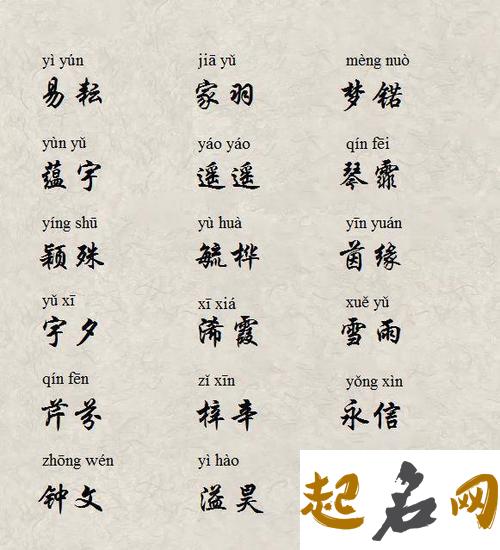 yì yún jiā yǔ mèng nuò
易耘 家羽 梦锘
yùn yǔ yáo yáo qín fēi
蕴宇 遥遥 琴霏
yíng shū yù huà yīn yuán
颖殊 毓桦 茵缘
yǔ xī xī xiá xuě yǔ
宇夕 浠霞 雪雨
qín fēn zǐ xīn yǒng xìn
芹芬 梓辛 永信
zhōng wén yì hào
钟文 溢昊
起名网